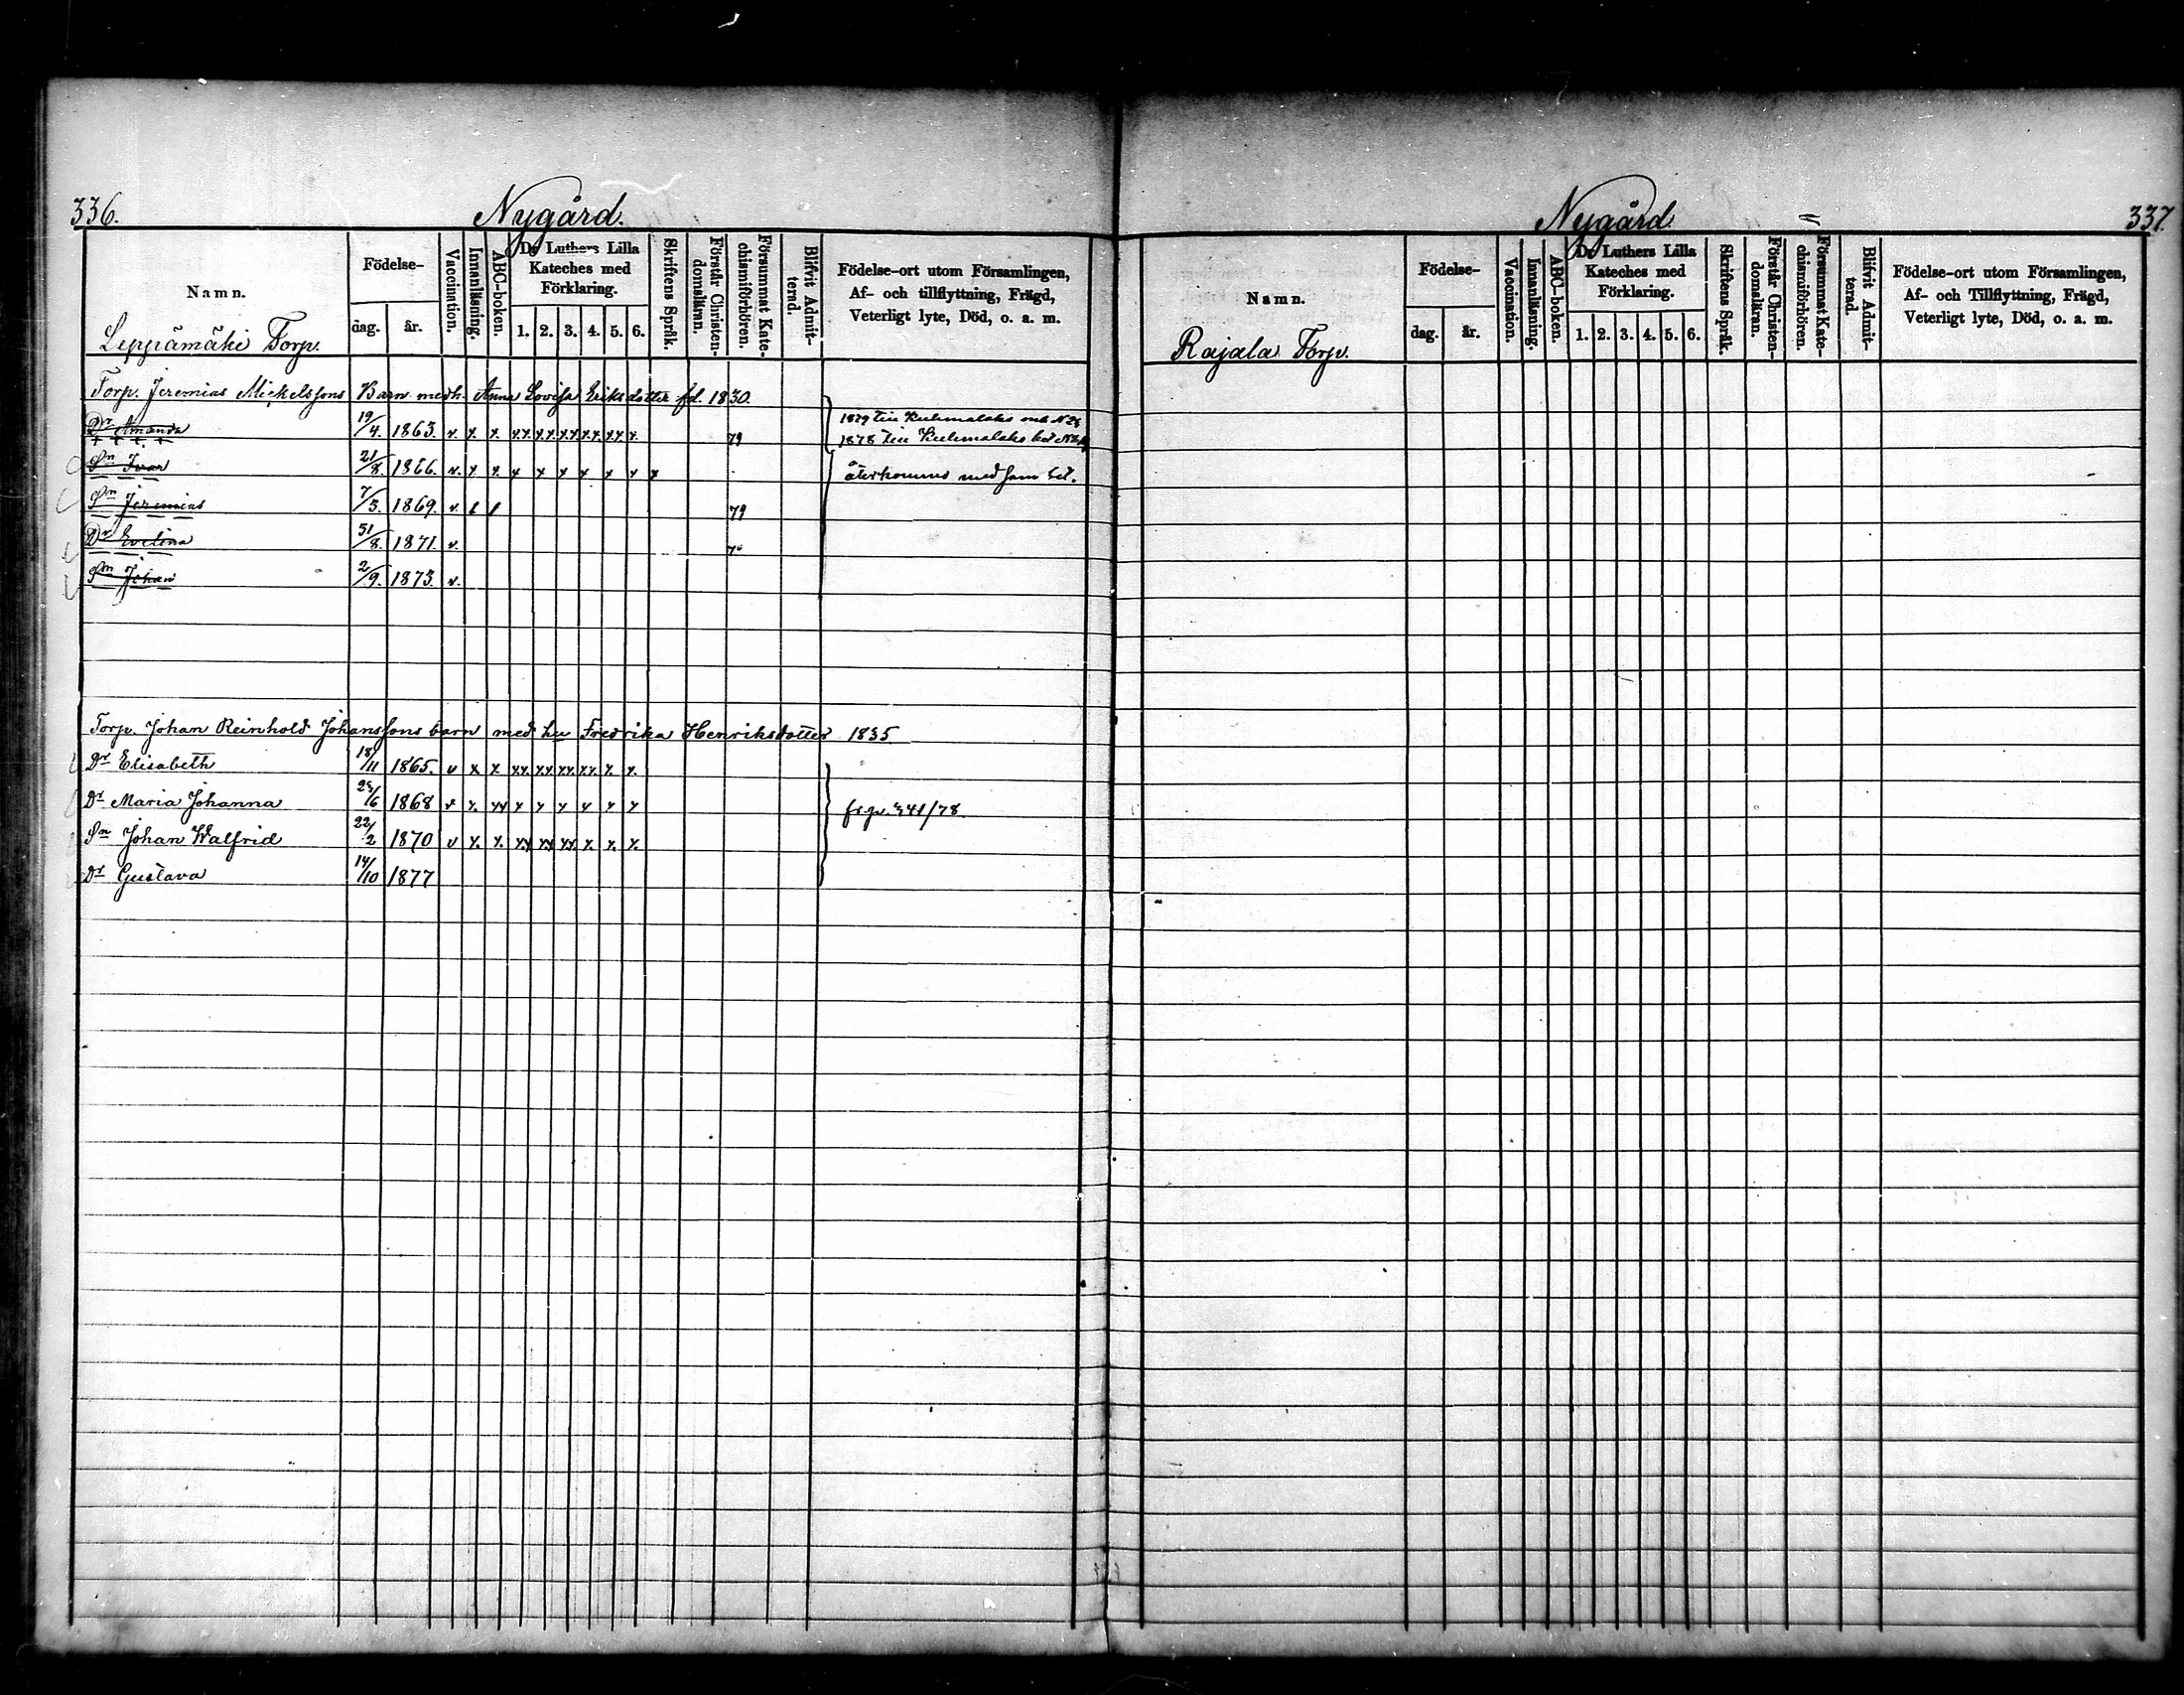 336.
Nygård.
Namn.
Födelse-
dag. år.
Vaccination.
Innanläsning.
ABC-boken.
Dr Luthers Lilla
Kateches med
Förklaring.
1. 2. 3. 4. 5. 6.
Skriftens Språk.
Förstår Christen-
domsläran.
Försummat Kate-
chismiförhören.
Blifvit Admit-
terad.
Födelse-ort utom Församlingen,
Af- och tillflyttning, Frägd,
Veterligt lyte, Död, o. a. m.
Leppämäki Torp.
Torp. Jeremias Mickelssons Barn med h. Anna Lovisa Eriksdotter fd. 1830.
Dr Amanda 19/4. 1863. v. x. x. xx xx xx xx xx x. 79 1879 till Kuhmalaks
1878 till Kuhmalaks
Sn Ivar 21/8. 1866. v. x x. x x x x x x x återkommo med sam bet.
Sn Jeremias 7/3. 1869. v. 79
Dr Evelina 31/8. 1871. v.
Sn Johan 2/9. 1873. v.
Torp. Johan Reinhold Johanssons barn med hu Fredrika Henriksdotter 1835
Dr Elisabeth 18/11 1865. v x x xx xx xx xx x. x.
Dr Maria Johanna 1868 v x. xx x x x x x x fr p. 341/78.
Sn Johan Walfrid 22/2 1870 v x. x. xx xx xx x. x. x.
Dr Gustava 14/10 1877
Nygård
337.
Namn.
Födelse-
dag. år.
Vaccination.
Innanläsning.
ABC-boken.
Dr Luthers Lilla
Kateches med
Förklaring.
1. 2. 3. 4. 5. 6.
Skriftens Språk.
Förstår Christen-
domsläran.
Försummat Kate-
chismiförhören.
Blifvit Admit-
terad.
Födelse-ort utom Församlingen,
Af- och Tillflyttning, Frägd,
Veterligt lyte, Död, o. a. m.
Rajala Torp.